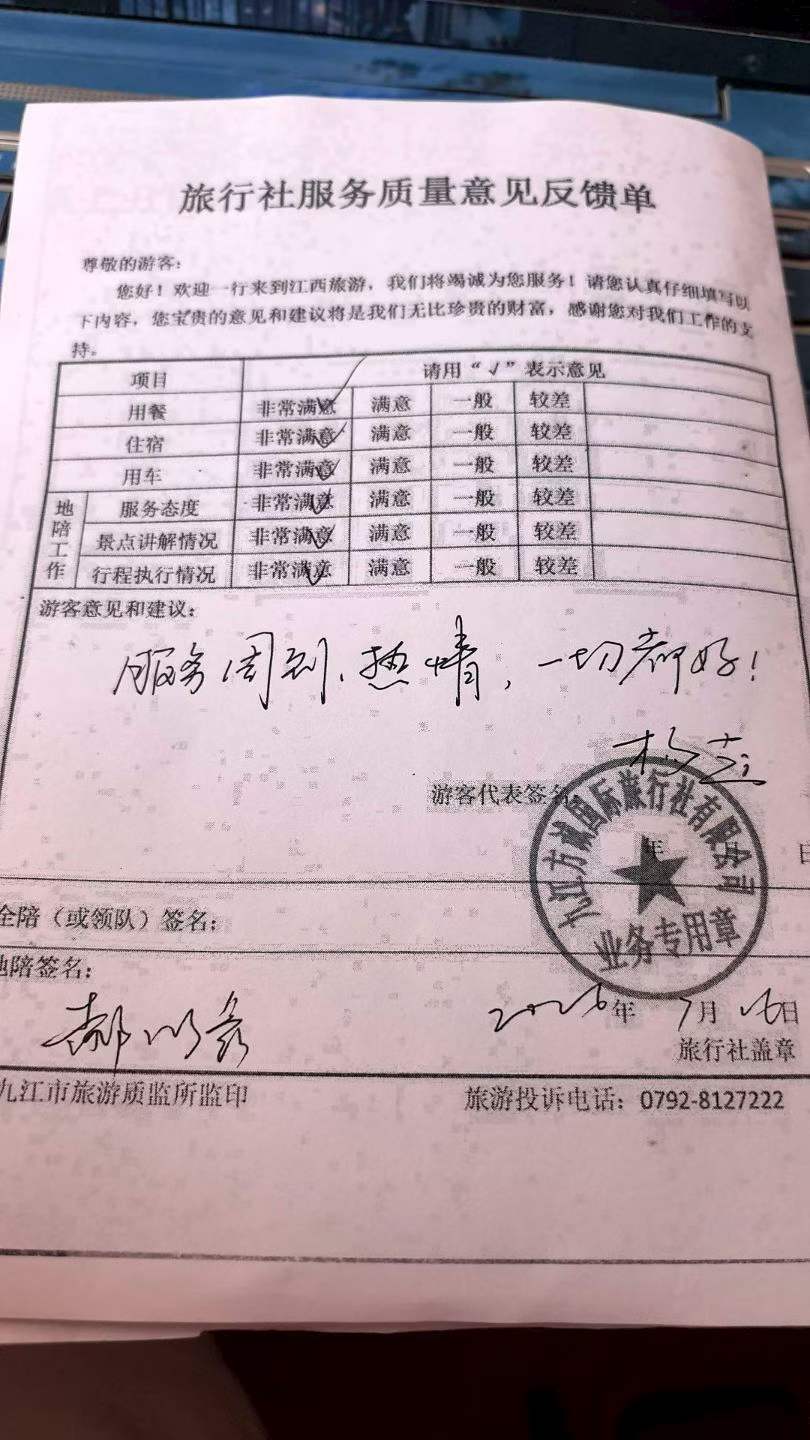 旅行社服务质量意见反馈单
尊敬的游客：
您好！欢迎一行来到江西旅游，我们将竭诚为您服务！请您认真仔细填写以
下内容，您宝贵的意见和建议将是我们无比珍贵的财富，感谢您对我们工作的支
持。
项目 请用“√”表示意见
用餐 非常满意 满意 一般 较差
住宿 非常满意 满意 一般 较差
用车 非常满意 满意 一般 较差
地陪工作
服务态度 非常满意 满意 一般 较差
景点讲解情况 非常满意 满意 一般 较差
行程执行情况 非常满意 满意 一般 较差
游客意见和建议：
服务周到、热情，一切都好！
游客代表签名
年 月 日
九江方诚国际旅行社有限公司
业务专用章
全陪（或领队）签名：
地陪签名：
年 7月 16日
旅行社盖章
九江市旅游质监所监印 旅游投诉电话：0792-8127222